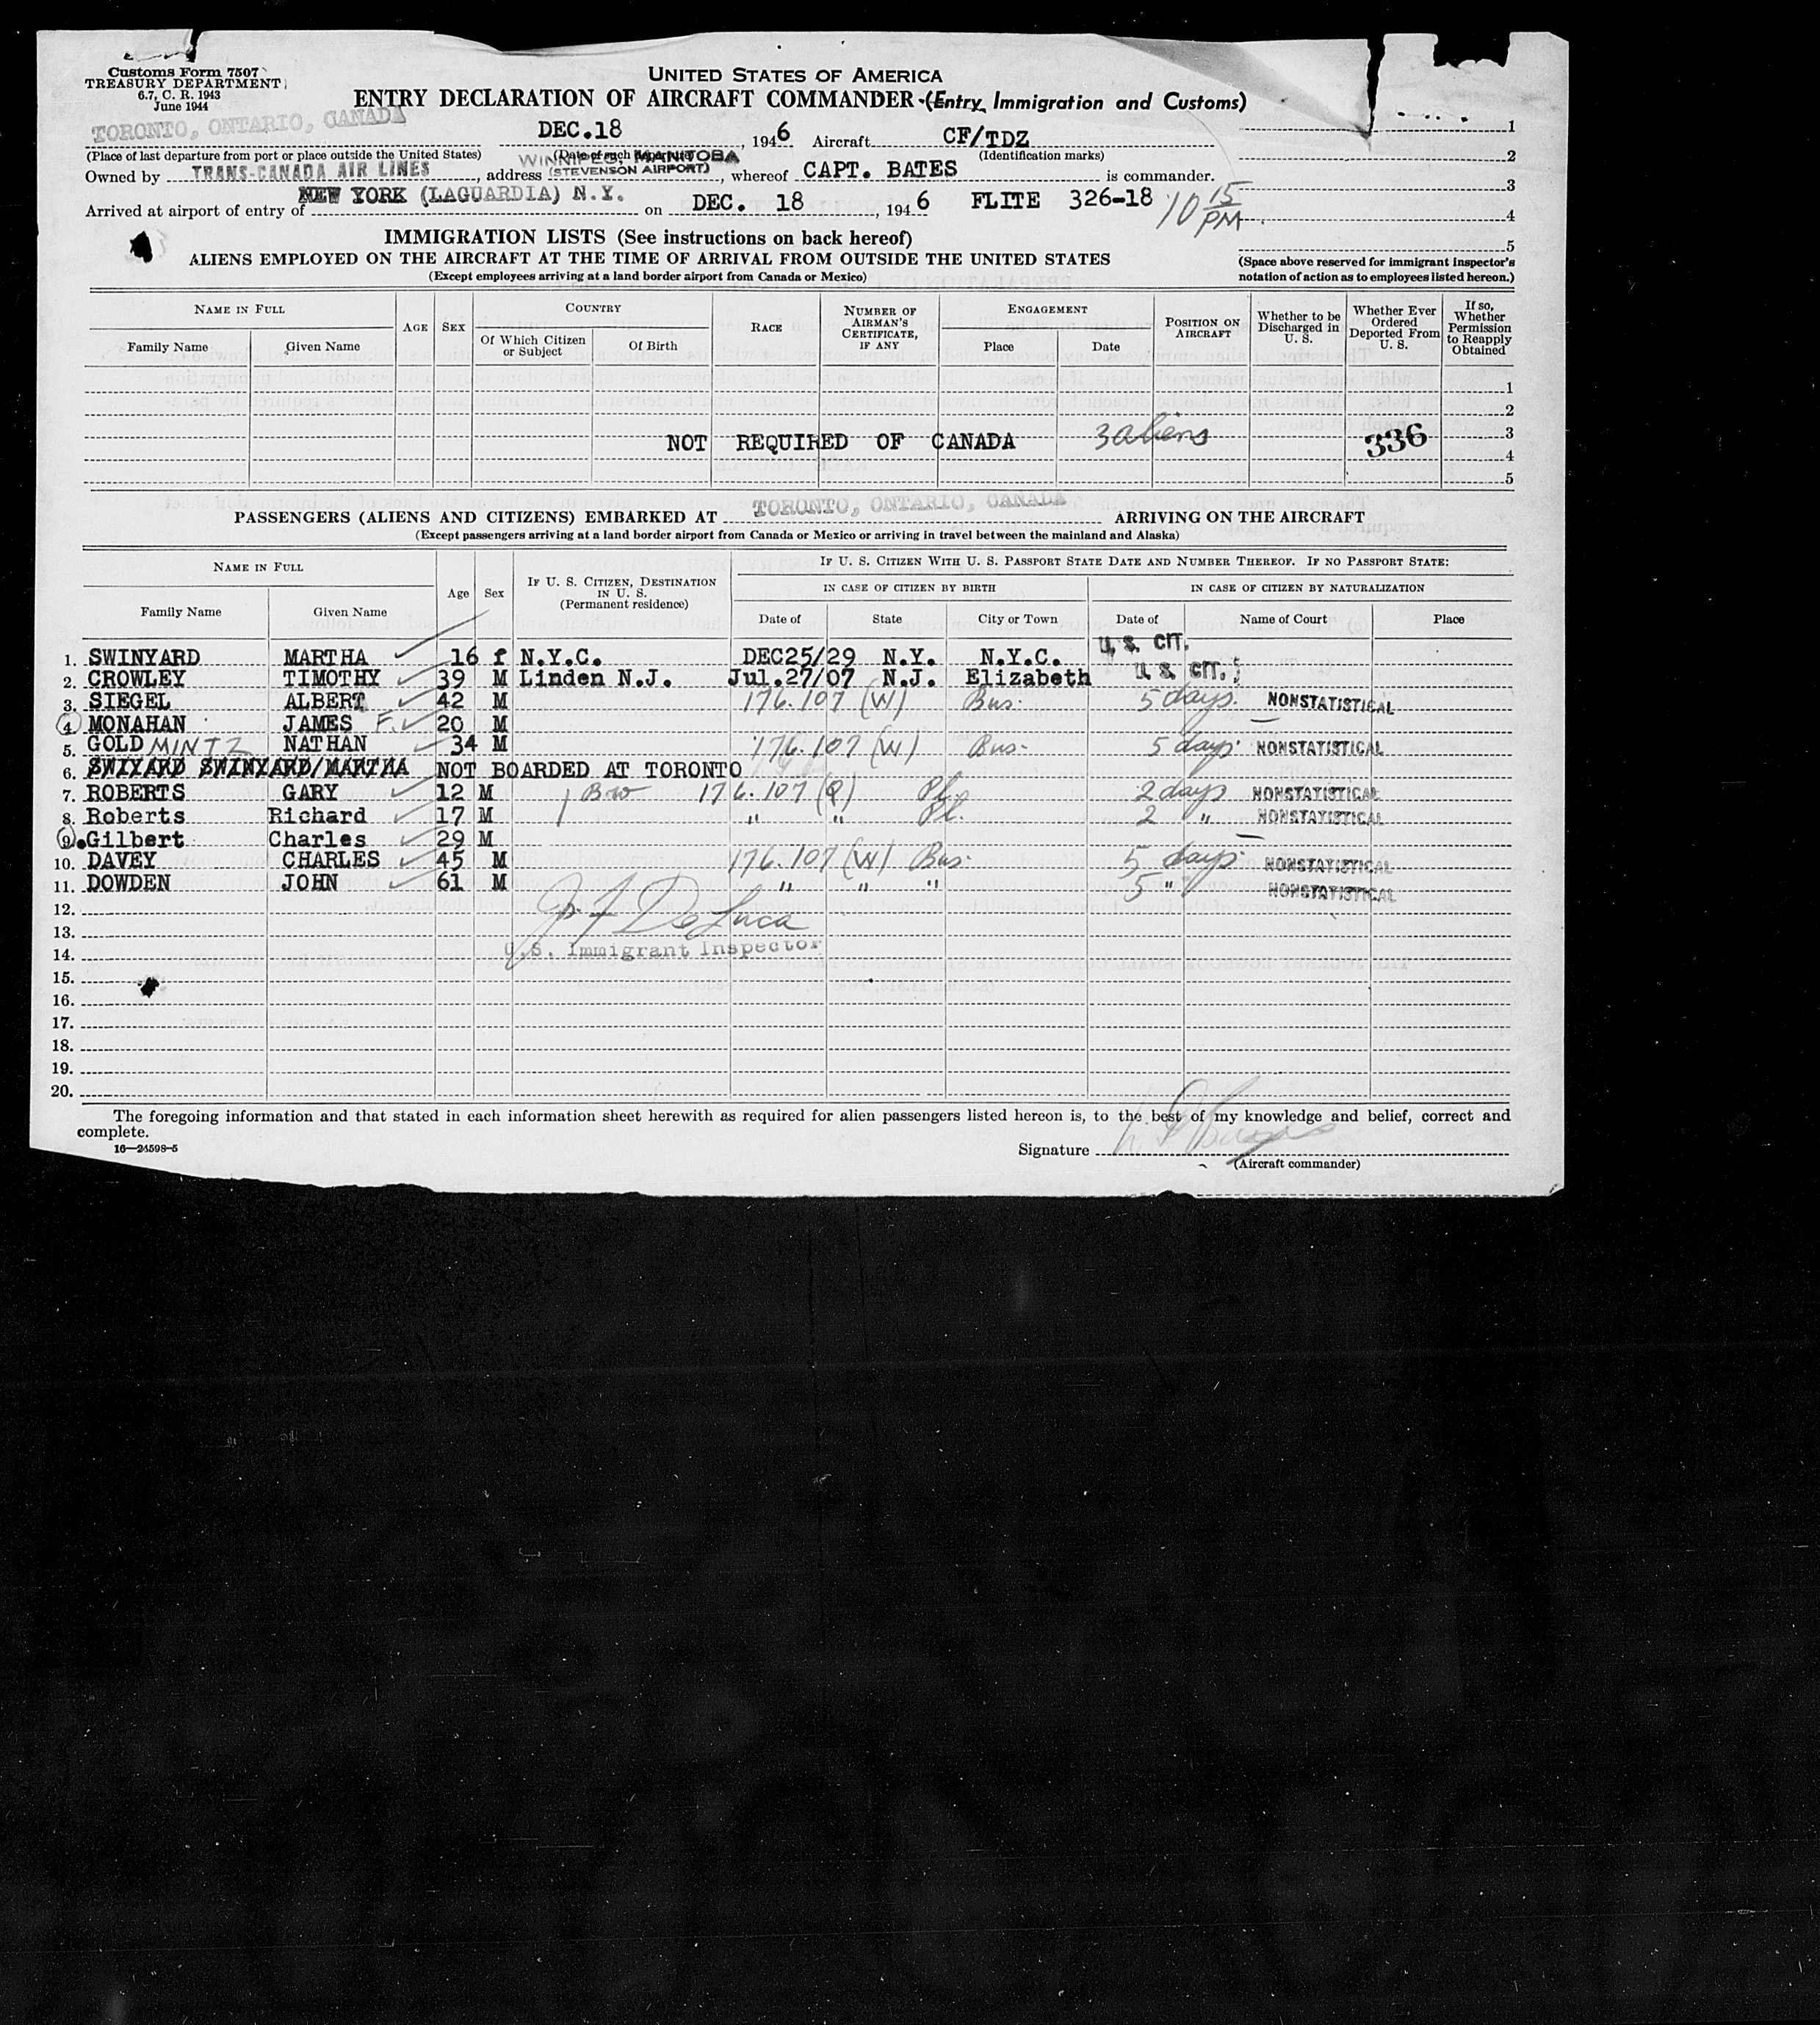 Customs Form 7507
TREASURY DEPARTMENT
6.7, C. R. 1943
June 1944
UNITED STATES OF AMERICA
ENTRY DECLARATION OF AIRCRAFT COMMANDER (Entry Immigration and Customs)
TORONTO, ONTARIO, CANADA DEC.18, 1946 Aircraft CF/TDZ
(Place of last departure from port or place outside the United States) (Date of such departure) (Identification marks)
WINNIPEG, MANITOBA
Owned by TRANS-CANADA AIR LINES, address (STEVENSON AIRPORT), whereof CAPT. BATES is commander.
Arrived at airport of entry of NEW YORK (LAGUARDIA) N.Y. on DEC. 18, 1946 FLITE 326-18 10 15 PM
1
2
3
4
5
(Space above reserved for immigrant inspector's notation of action as to employees listed hereon.)
IMMIGRATION LISTS (See instructions on back hereof)
ALIENS EMPLOYED ON THE AIRCRAFT AT THE TIME OF ARRIVAL FROM OUTSIDE THE UNITED STATES
(Except employees arriving at a land border airport from Canada or Mexico)
NAME IN FULL AGE SEX COUNTRY RACE NUMBER OF AIRMAN'S CERTIFICATE, IF ANY ENGAGEMENT POSITION ON AIRCRAFT Whether to be Discharged in U. S. Whether Ever Ordered Deported From U. S. If so, Whether Permission to Reapply Obtained
Family Name Given Name Of Which Citizen or Subject Of Birth Place Date
1
2
NOT REQUIRED OF CANADA 3 aliens 336 3
4
5
PASSENGERS (ALIENS AND CITIZENS) EMBARKED AT TORONTO, ONTARIO, CANADA ARRIVING ON THE AIRCRAFT
(Except passengers arriving at a land border airport from Canada or Mexico or arriving in travel between the mainland and Alaska)
NAME IN FULL Age Sex IF U. S. CITIZEN, DESTINATION IN U. S. (Permanent residence) IF U. S. CITIZEN WITH U. S. PASSPORT STATE DATE AND NUMBER THEREOF. IF NO PASSPORT STATE:
IN CASE OF CITIZEN BY BIRTH IN CASE OF CITIZEN BY NATURALIZATION
Family Name Given Name Date of State City or Town Date of Name of Court Place
1. SWINYARD MARTHA 16 f N.Y.C. DEC25/29 N.Y. N.Y.C. U. S. CIT.
2. CROWLEY TIMOTHY 39 M Linden N.J. Jul.27/07 N.J. Elizabeth U. S. CIT.
3. SIEGEL ALBERT 42 M 176.107 (W) Bus. 5 days. NONSTATISTICAL
4 MONAHAN JAMES F. 20 M
5. GOLD MINTZ NATHAN 34 M 176.107 (W) Bus. 5 days. NONSTATISTICAL
6. SWIYARD SWINYARD/MARTHA NOT BOARDED AT TORONTO
7. ROBERTS GARY 12 M Bro 176.107 (P) Pl. 2 days NONSTATISTICAL
8. Roberts Richard 17 M " " Pl. 2 " NONSTATISTICAL
9. Gilbert Charles 29 M
10. DAVEY CHARLES 45 M 176.107 (W) Bus. 5 days. NONSTATISTICAL
11. DOWDEN JOHN 61 M " " " 5 " NONSTATISTICAL
12.
13. De Luca
14. U.S. Immigrant Inspector
15.
16.
17.
18.
19.
20.
The foregoing information and that stated in each information sheet herewith as required for alien passengers listed hereon is, to the best of my knowledge and belief, correct and
complete.
16—24598-5
Signature
(Aircraft commander)